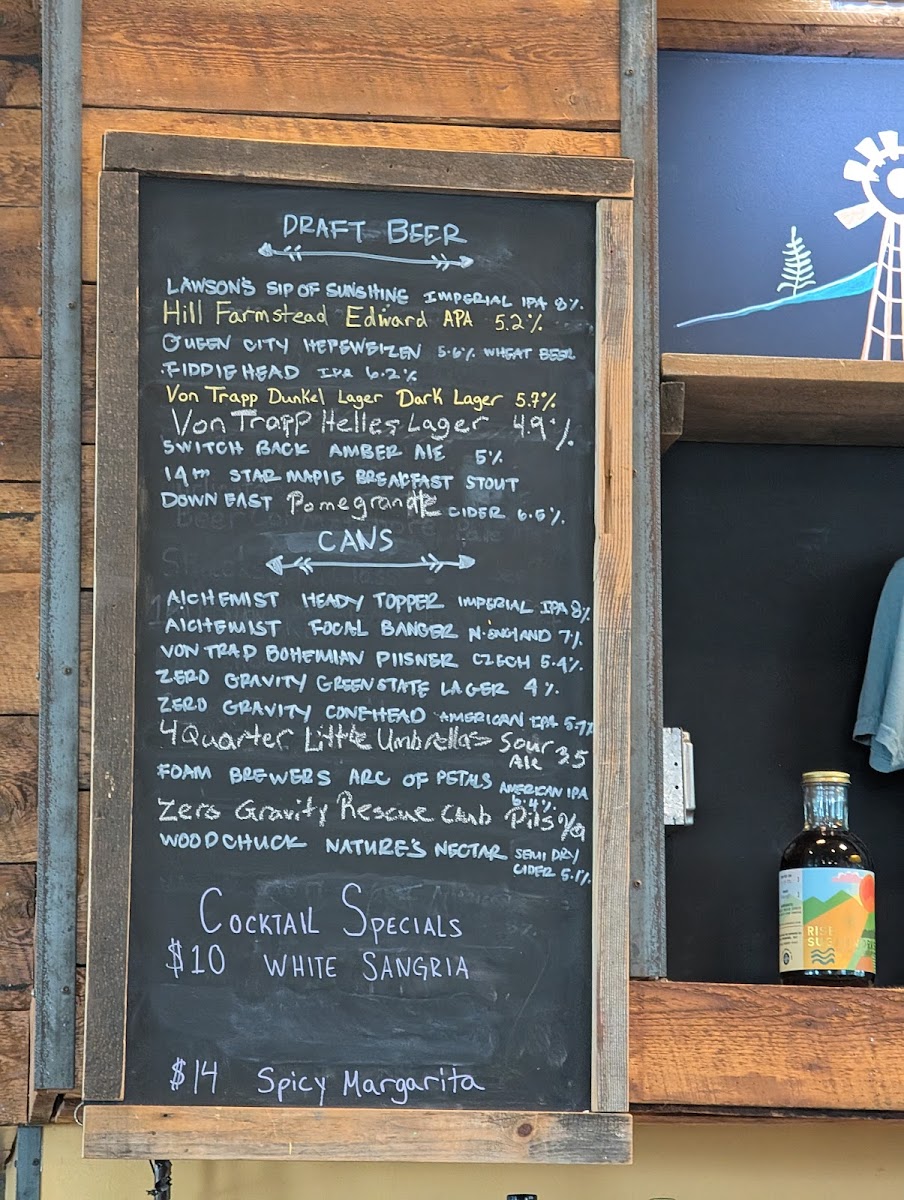 DRAFT BEER
LAWSON'S SIP OF SUNSHINE IMPERIAL IPA 8%
Hill Farmstead Edward APA 5.2%
QUEEN CITY HEFEWEIZEN 5.6% WHEAT BEER
FIDDLEHEAD IPA 6.2%
Von Trapp Dunkel Lager Dark Lager 5.7%
Von Trapp Helles Lager 4.9%
SWITCH BACK AMBER ALE 5%
14TH STAR MAPLE BREAKFAST STOUT
DOWN EAST Pomegranate CIDER 6.5%
CANS
ALCHEMIST HEADY TOPPER IMPERIAL IPA 8%
ALCHEMIST FOCAL BANGER N. ENGLAND 7%
VON TRAP BOHEMIAN PILSNER CZECH 5.4%
ZERO GRAVITY GREEN STATE LAGER 4%
ZERO GRAVITY CONEHEAD AMERICAN IPA
4 Quarter Little Umbrellas Sour
Ale 3.5
FOAM BREWERS ARC OF PETALS AMERICAN IPA
6.4%
Zero Gravity Rescue Club Pils
WOODCHUCK NATURE'S NECTAR SEMI DRY
CIDER 5.1%
COCKTAIL SPECIALS
$10 WHITE SANGRIA
$14 Spicy Margarita
RISE